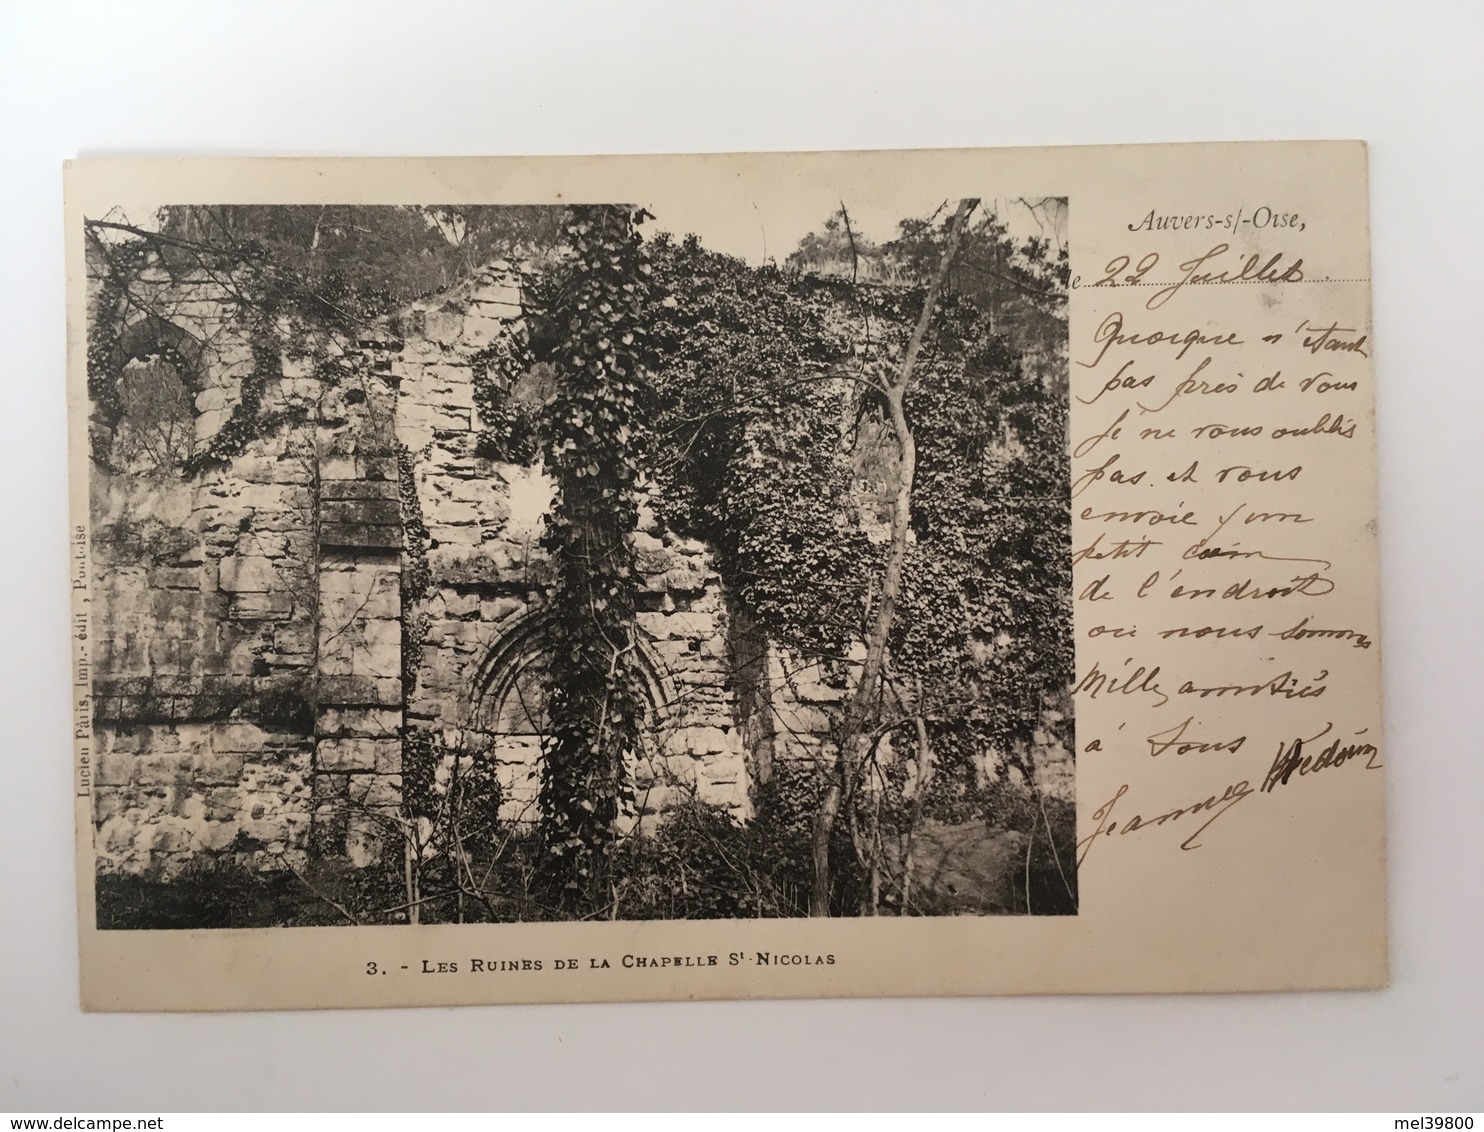 Auvers-s/-Oise,
le 22 Juillet
Quoique n'étant
pas près de vous
je ne vous oublis
pas et vous
envoie
petit coin
de l'endroit
où nous sommes
Mille amitiés
à tous
Jeanne
Lucien Pâris, Imp.-édit, Pontoise
3. - Les Ruines de la Chapelle St-Nicolas
www.delcampe.net
mel39800